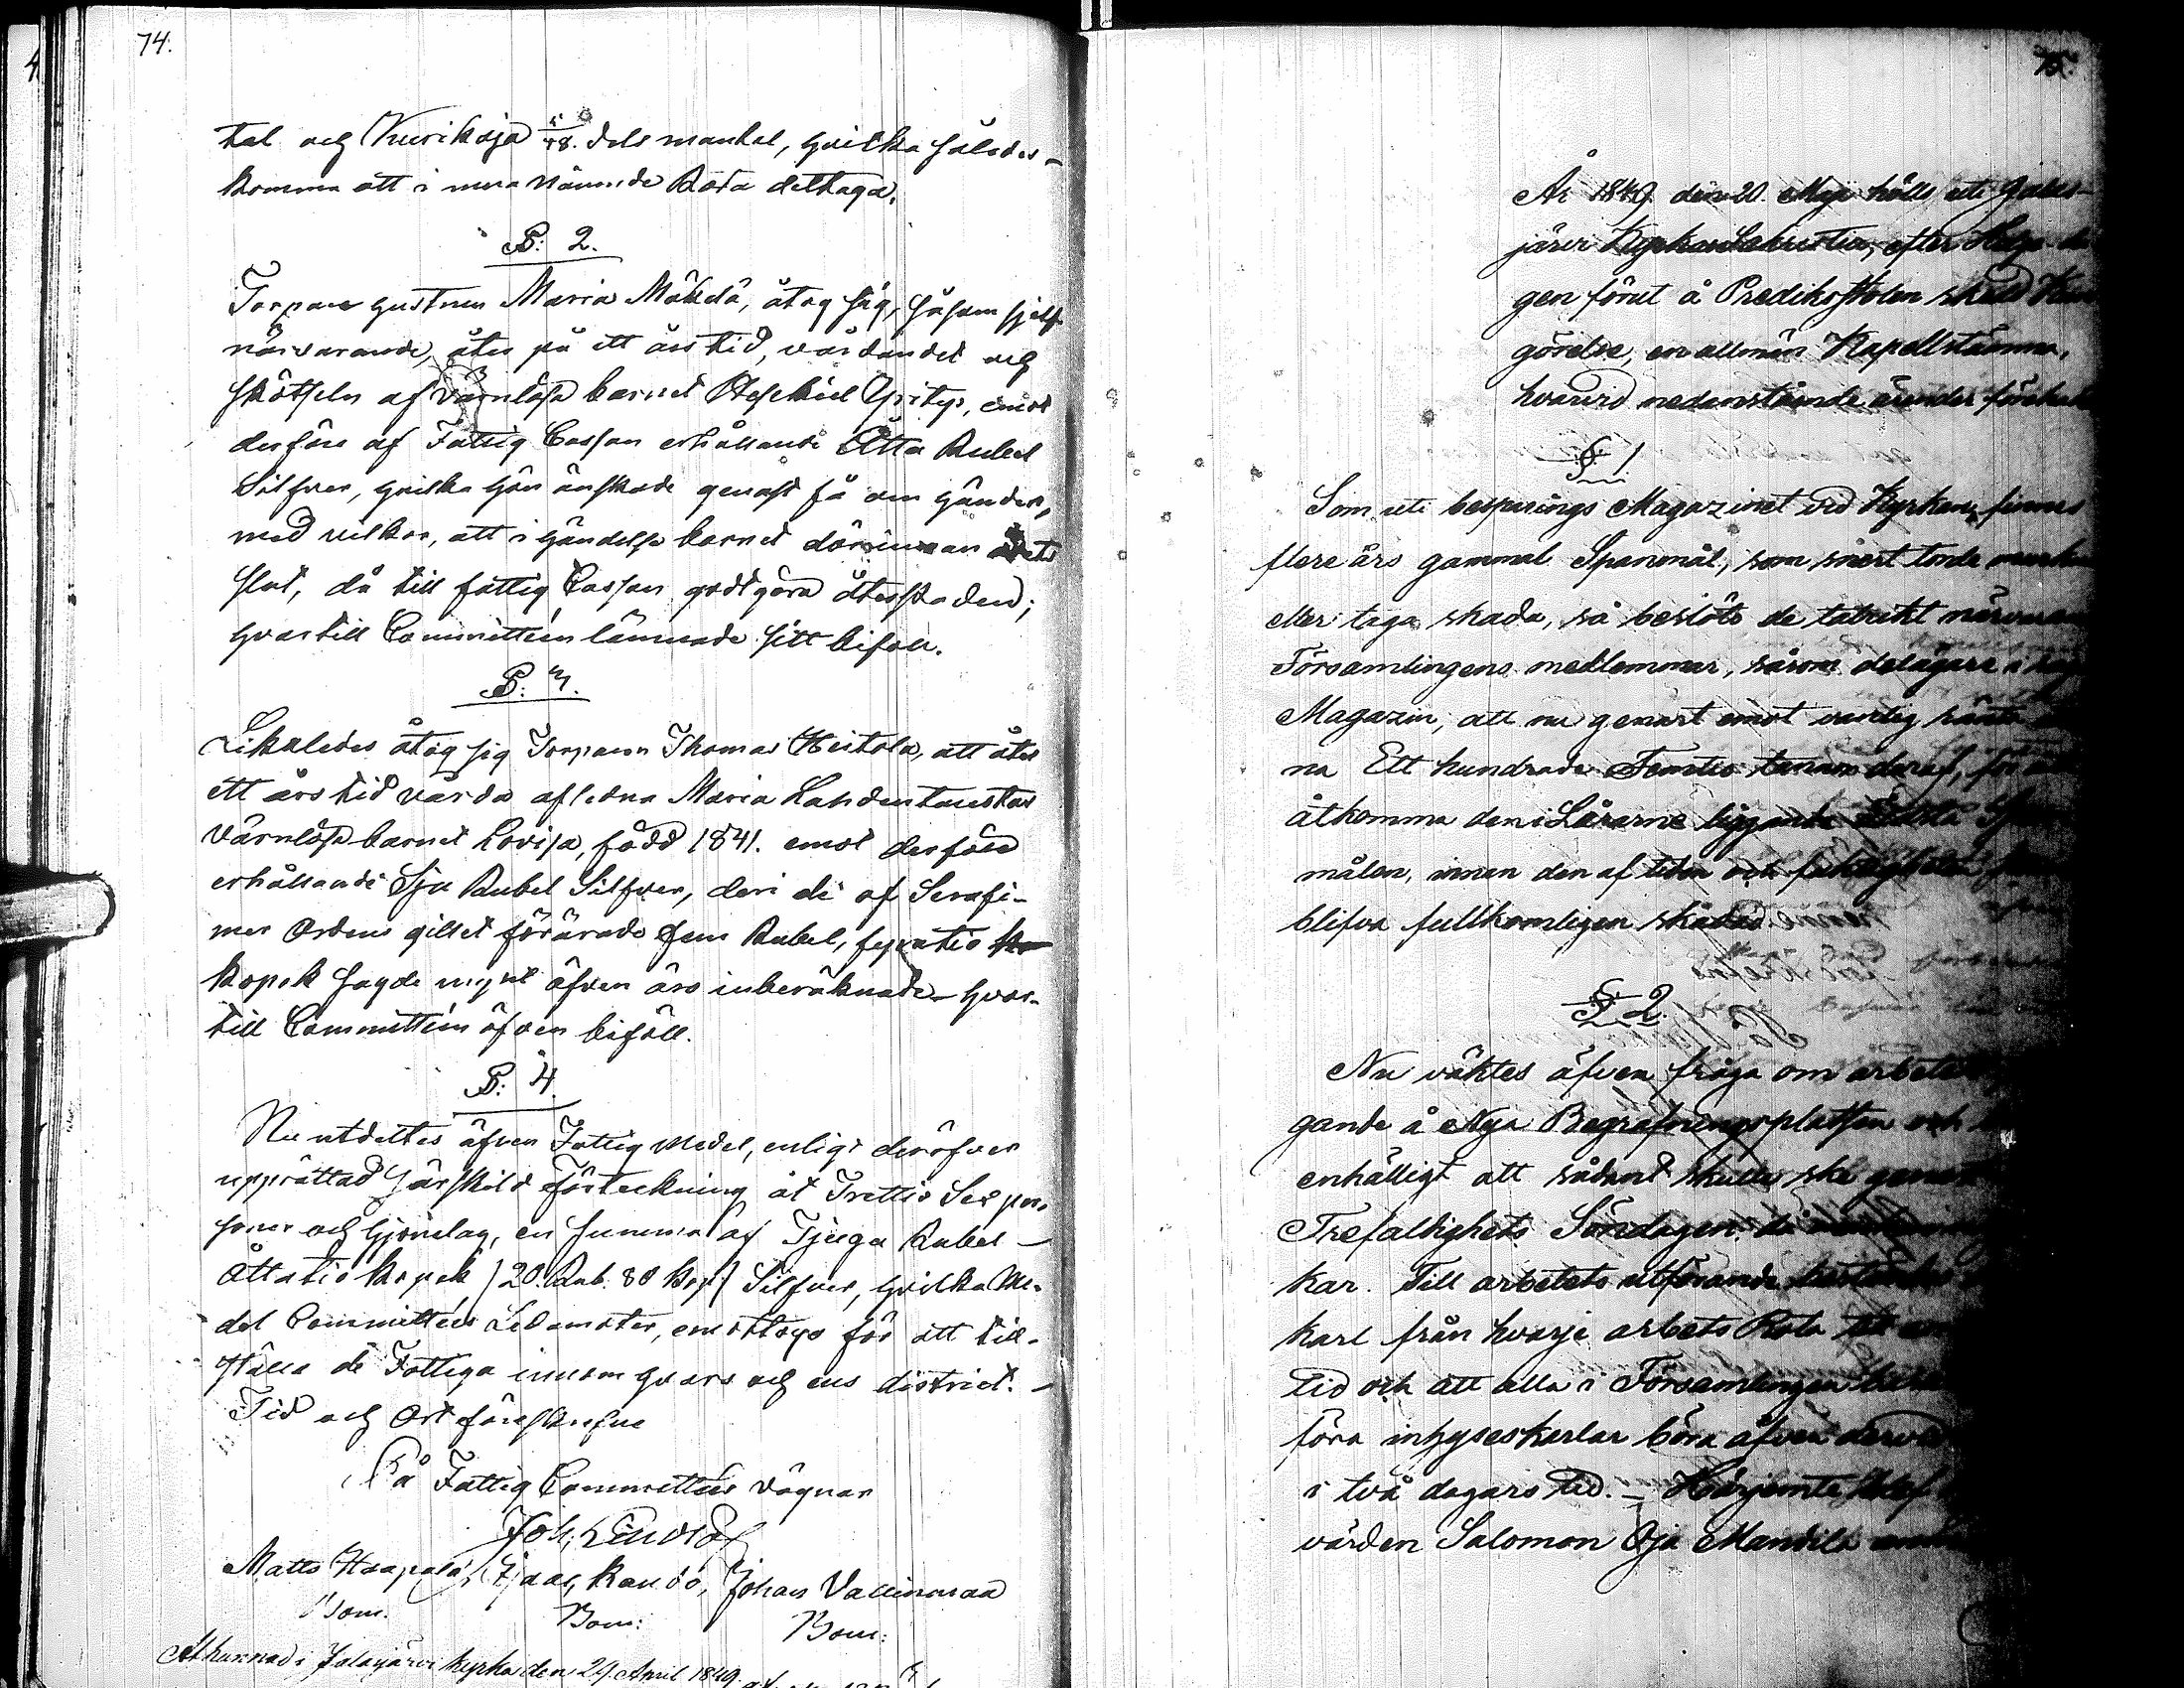 74.
tal och Kuriksja 5/48. dels mantal, hvilka således
komma att i mera nämnde Rota deltaga.
§: 2.
Torpare hustrun Maria Mäkelä, åtog sig, såsom sjelf
närvarande, åter på ett års tid, vårdandet och
skötseln af värnlösa barnet Hesekiel Yrityn, emot
derföre af Fattig Cassan erhållande Åtta Rubel
Silfver, hvilka hon önskade genast få om händer,
med vilkor, att i händelse barnet dör innan årets
slut, då till fattig Cassan godtgöra återstoden;
hvartill Committéen lämnade sitt bifall.
§: 3.
Likaledes åtog sig Torparen Thomas Heitola, att åter
ett års tid vårda aflidna Maria Lahdentaustas
värnlösa barnet Lovisa, född 1841. emot derföre
erhållande Sju Rubel Silfver, deri de af Serafi-
mer Ordens gillet förärade fem Rubel, fyratio
kopek sagde mynt äfven äro inberäknade - hvar-
till Committéen äfven biföll.
§: 4.
Nu utdeltes äfven Fattig medel, enligt deröfver
upprättad särskild Förteckning åt Trettio Sex per-
soner och hjonelag, en summa af Tjugu Rubel
Åttatio kopek /20. Rub. 80 kop:/ Silfver, hvilka Me-
del Committéens Ledamöter, emottogo för att till-
ställa de Fattiga innom hvars och ens district. -
Tid och Ort föreskrefne
På Fattig Committéens vägnar
Joh:
Matts Haapala, Isaac Rando, Johan Vallinmaa
Bom: Bom: Bom:
Afkunnad i Jalasjärvi kyrka den 29. April 1849.
75.
År 1849 den 20. Maji hölls uti Jalas-
järvi Kyrkas Sakristia, efter Helge da
gen förut å Predikostolen skedd Kun
görelse, en allmän Kapellstämma,
hvarvid nedanstående ärender
§ 1.
Som uti besparings Magazinet vid Kyrkan, finnes
flere års gammal Spanmål, som snart torde
eller taga skada, så beslöto de talrikt närvara
Församlingens medlemmar, såsom delägare i
Magazin, att nu genast emot vanlig ränta
na Ett hundrade Femtio tunnor deraf, för att
åtkomma den i Lårarne liggande
målen, innan den af tiden och fuktigheten
blifva fullkomligen skadad.
§ 2.
Nu väktes äfven fråga om arbete
gande å Nya Begrafningsplatsen och
enhälligt att sådant skulle ske genast
Trefaldighets Söndagen, då
kar. Till arbetets utförande bestämdes
karl från hvarje arbets Rota
tid och att alla i Församlingen
föra inhyseskarlar böra äfven dervid
i två dagars tid. - Härjemte
värden Salomon Oja Mandila